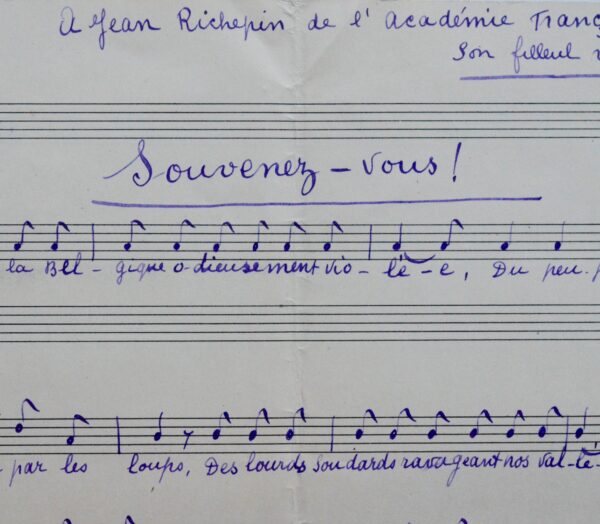 A Jean Richepin de l'Académie Franç
Son filleul
Souvenez-vous!
la Bel-gique o-dieusement vio-lé-e, Du peu-p
par les loups, Des lourds soudards ravageant nos val-lé-